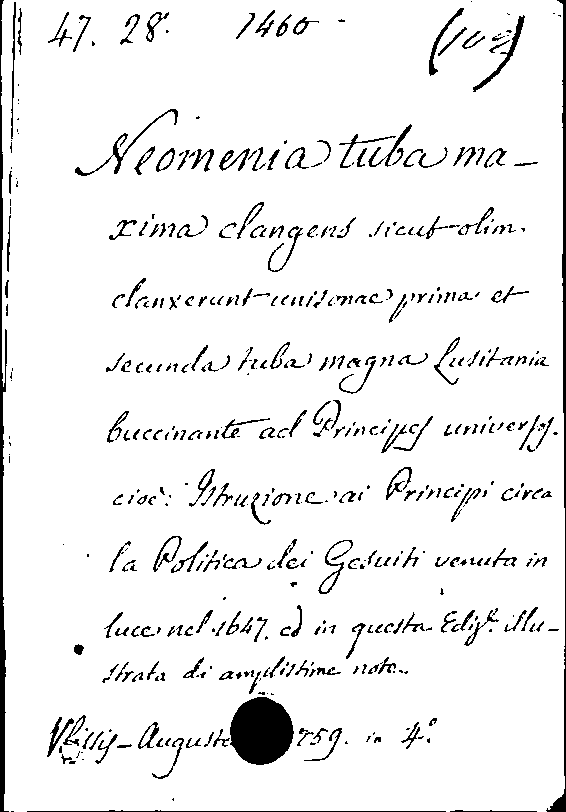 47. 28. 1460
Neomenia tuba ma-
xima clangens sicut olim.
clanxerunt unisonae prima et
secunda tuba magna Lusitania
buccinante ad Principes universos.
cioè: Istruzione ai Principi circa
la Politica dei Gesuiti venuta in
luce nel 1647. ed in questa Ediz.e illu-
strata di amplissime note.
Augusta 759. in 4.°